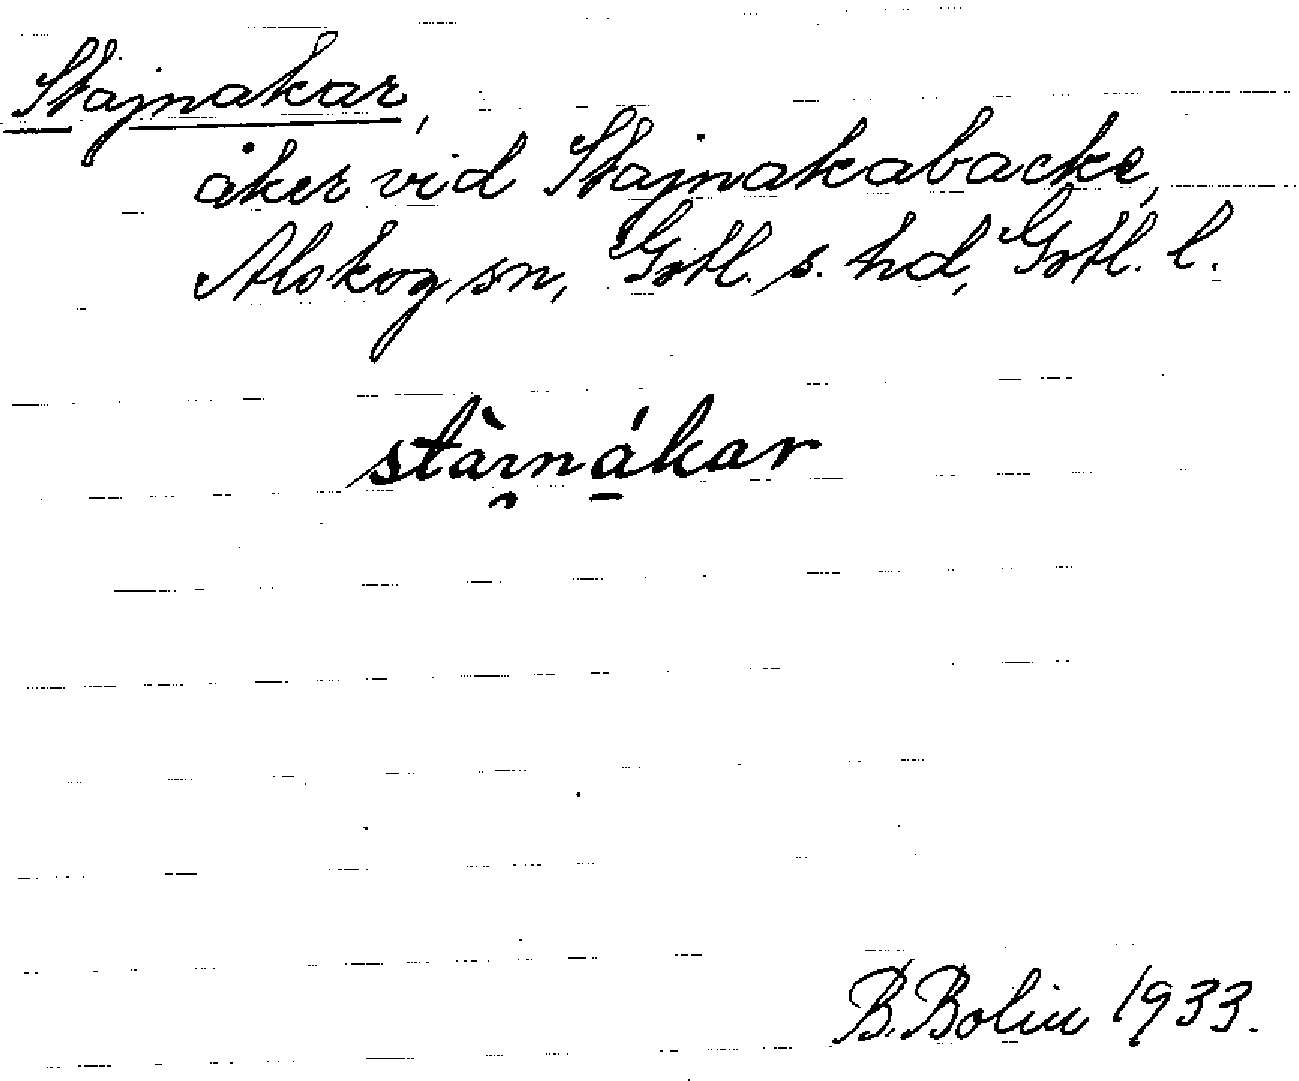 Stajnakar,
åker vid Stajnakabacke,
Alskog sn, Gotl. s. hd, Gotl. l.
stàı̯ná̱kar
B. Bolin 1933.